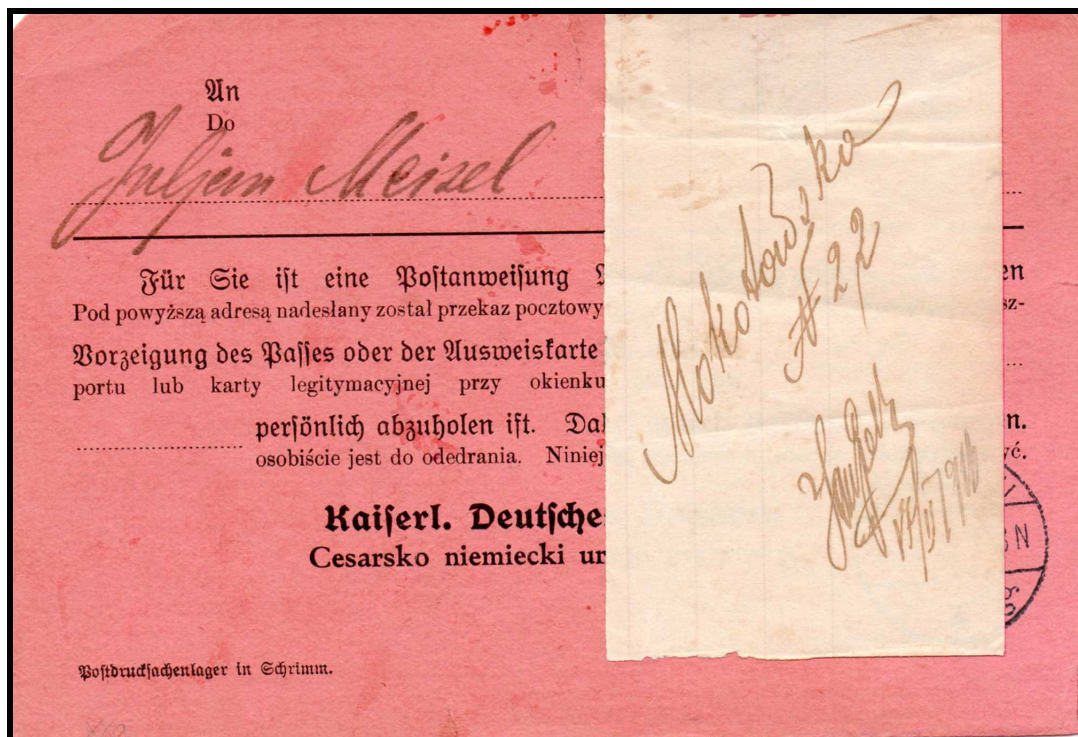 An
Do
Juljem Meisel
Für Sie ist eine Postanweisung
Pod powyższą adresą nadesłany został przekaz pocztowy
Vorzeigung des Passes oder der Ausweiskarte
portu lub karty legitymacyjnej przy okienku
persönlich abzuholen ist.
osobiście jest do odedrania.
Kaiserl.
Cesarsko niemiecki
Postdrucksachenlager in Schrimm.
Mokotowska
№ 22